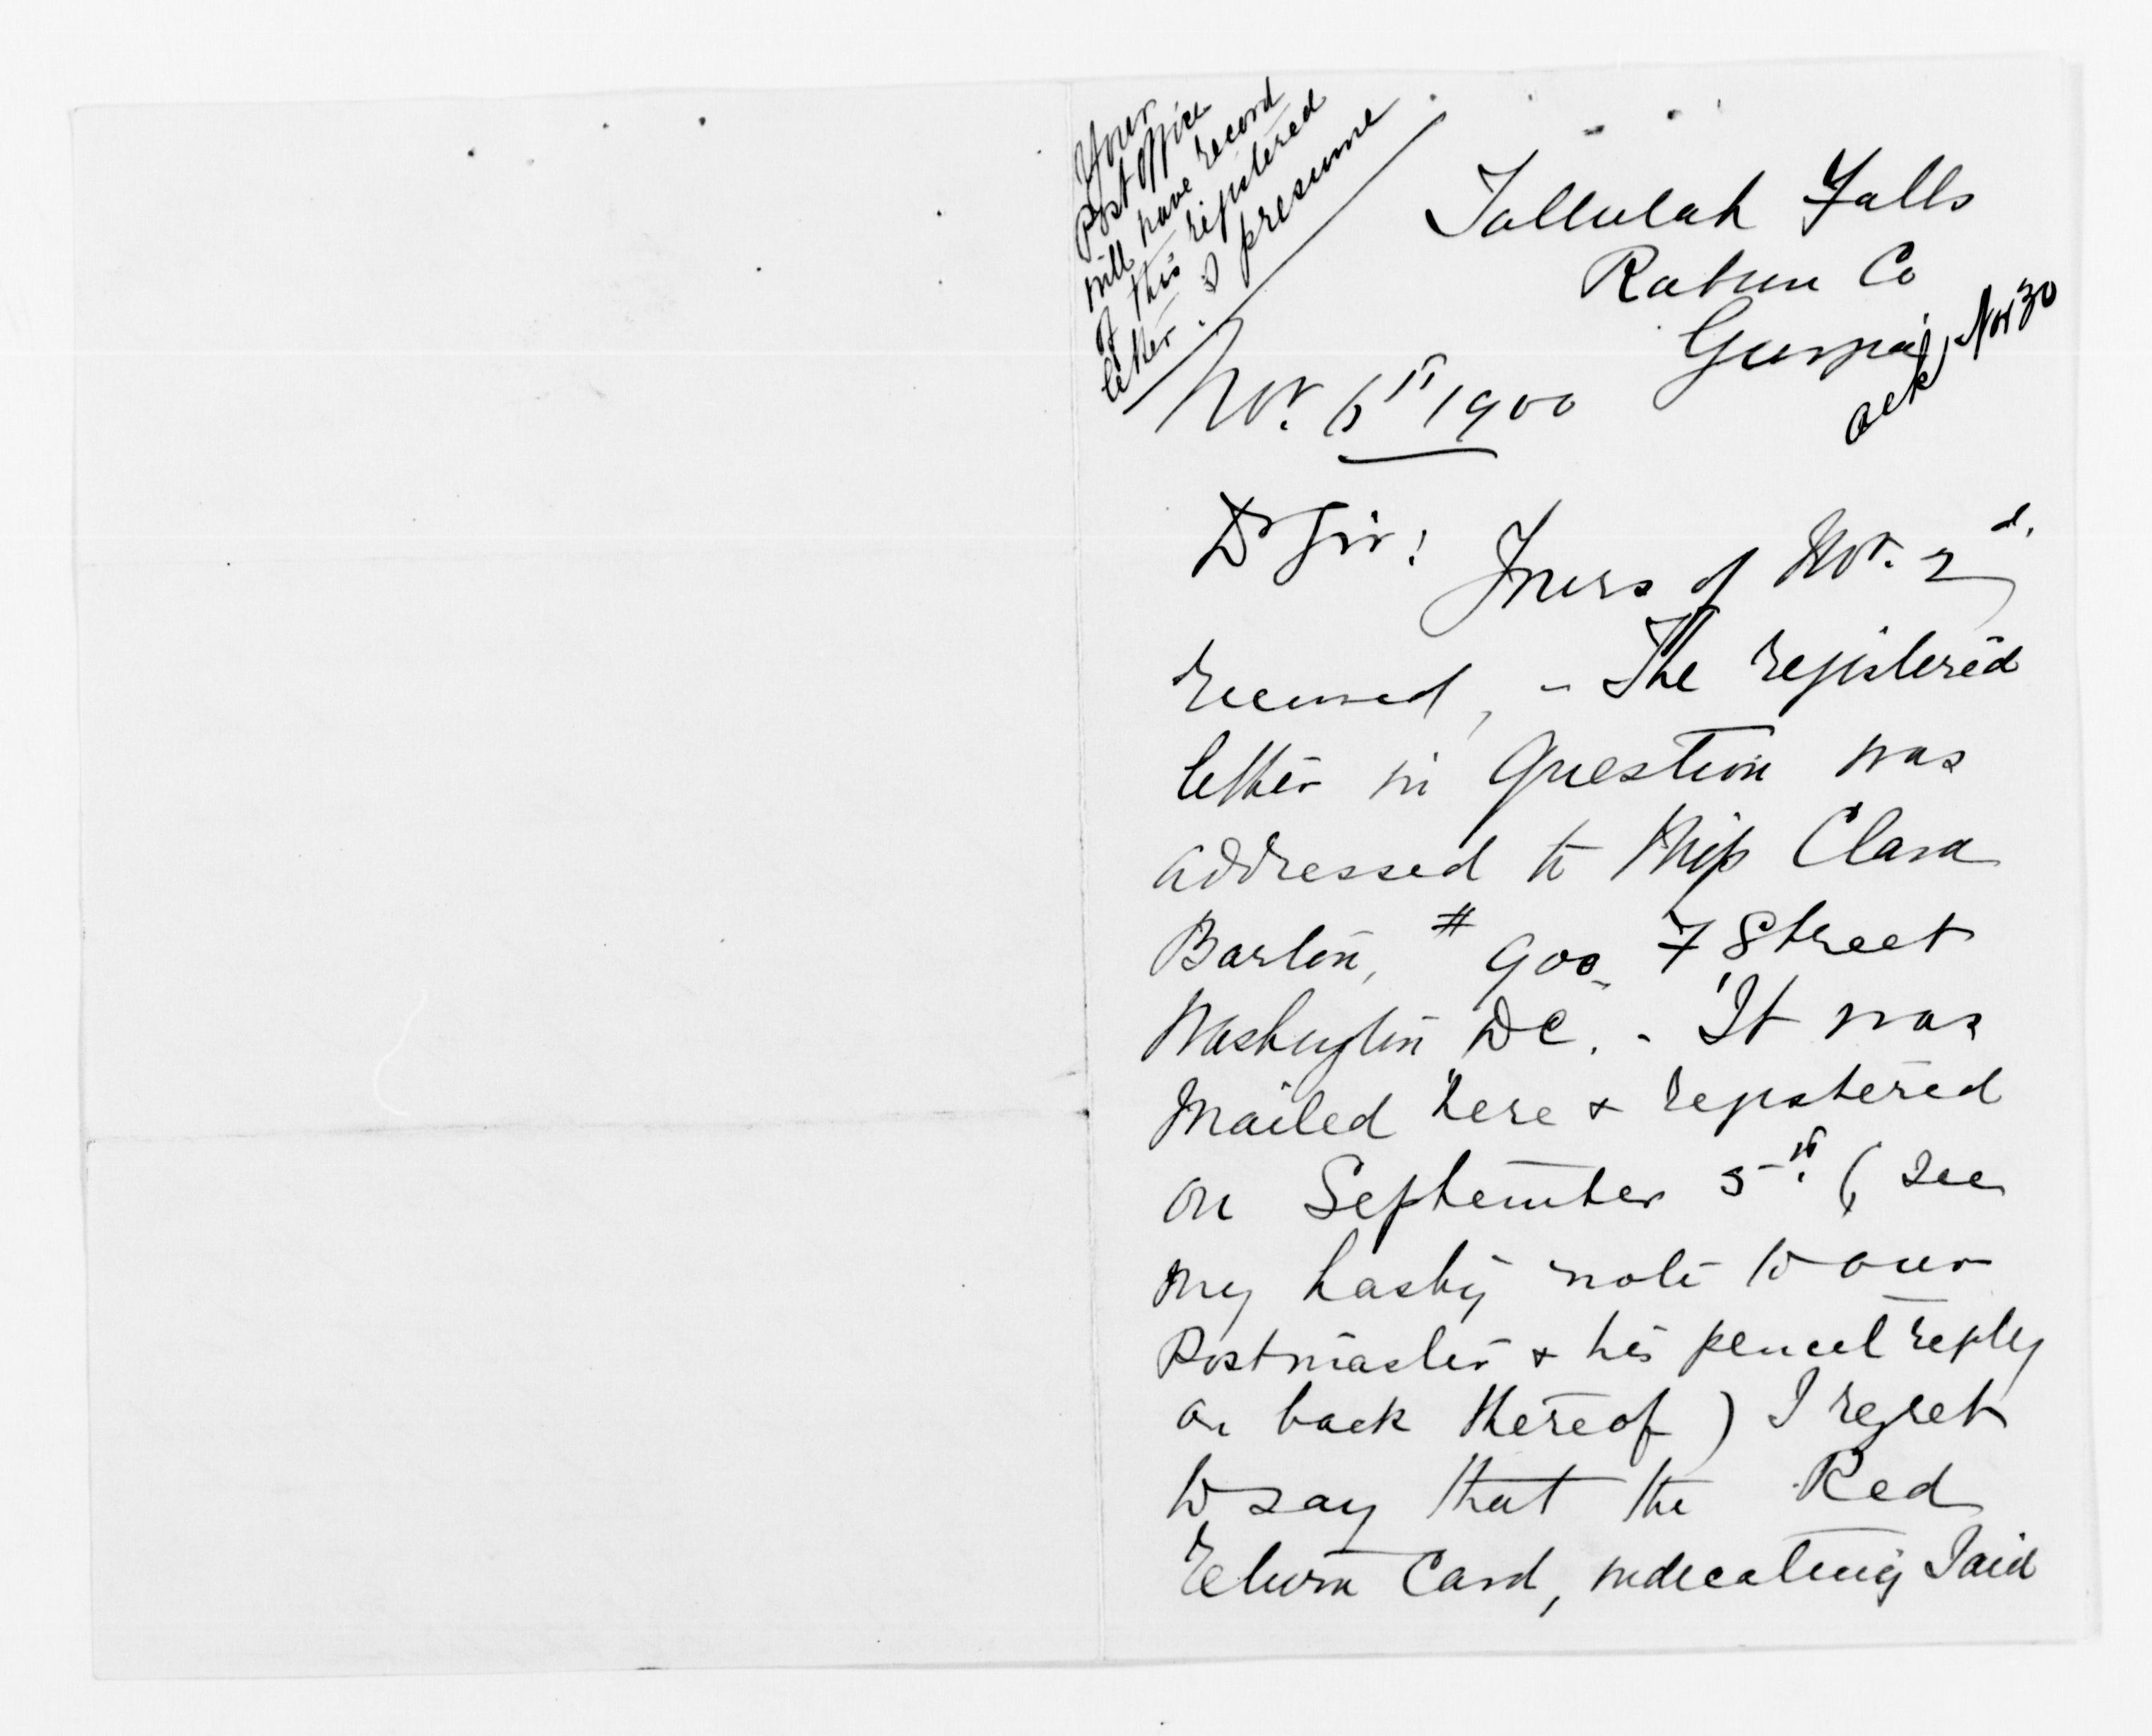 Your
Post Office
will have record
of this registered
letter. I presume
Tallulah Falls
Rabun Co
Georgia
ack Nov 30
Nov. 6th 1900
Dr Sir!
Yours of Nov. 2d.
received, - The registered
letter in question was
addressed to Miss Clara
Barton, # 900 F Street
Washington DC. - It was
mailed here & registered
on September 5th. (see
my hasty note to our
Postmaster & his pencil reply
on back thereof) I regret
to say that the Red
Return Card, indicating said